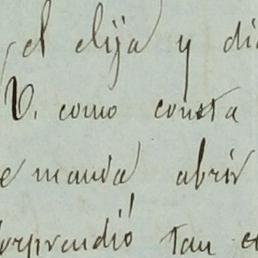 el elija y di
V. como consta
e manda abrir
orprendió tan e